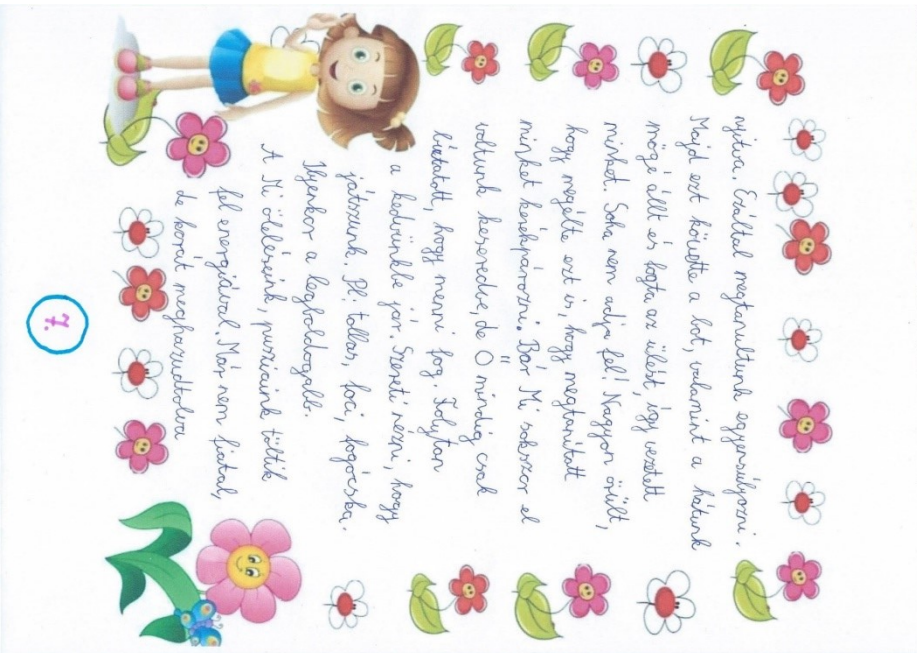 nyitva. Ezáltal megtanultunk egyensúlyozni.
Majd ezt követte a bot, valamint a hátunk
mögé állt és fogta az ülést, így vezetett
minket. Soha nem adja fel! Nagyon örült,
hogy megélte ezt is, hogy megtanított
minket kerékpározni. Bár Mi sokszor el
voltunk keseredve, de Ő mindig csak
biztatott, hogy menni fog. Folyton
a kedvünkbe jár. Szereti nézni, hogy
játszunk. Pl: tollas, foci, fogócska.
Ilyenkor a legboldogabb.
A Mi öleléseink, pusziaink töltik
fel energiával. Már nem fiatal,
de korát meghazudtolva
7.